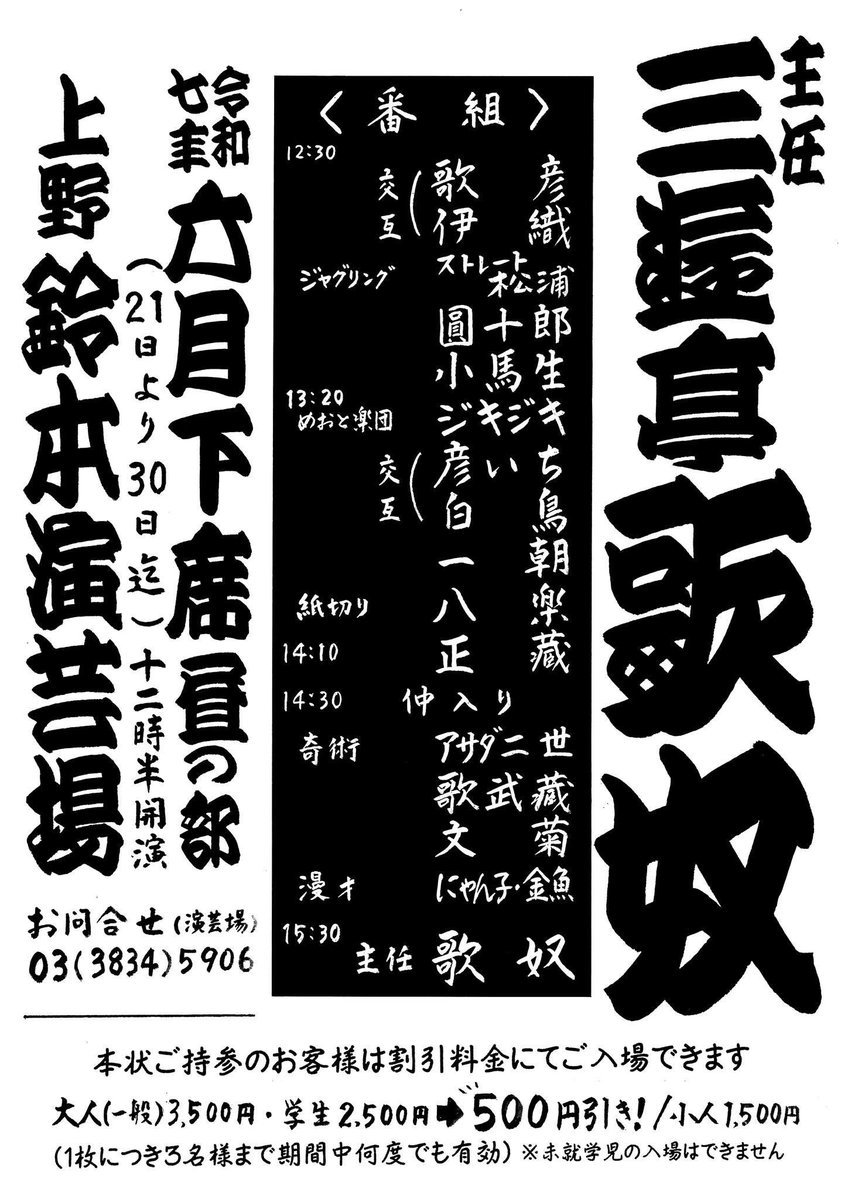 主任
三遊亭歌奴
〈番組〉
12:30
交互
歌彦
伊織
ジャグリング ストレート松浦
圓十郎
小馬生
13:20
めおと楽団 ジキジキ
交互
彦いち
白鳥
一朝
紙切り 八楽
14:10 正蔵
14:30 仲入り
奇術 アサダ二世
歌武蔵
文菊
漫才 にゃん子・金魚
15:30
主任 歌奴
令和七年
六月下席昼の部
(21日より30日迄)十二時半開演
上野 鈴本演芸場
お問合せ(演芸場)
03(3834)5906
本状ご持参のお客様は割引料金にてご入場できます
大人(一般)3,500円・学生2,500円➡500円引き!/小人1,500円
(1枚につき3名様まで期間中何度でも有効)※未就学児の入場はできません